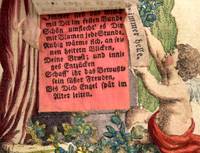 Immer sey der
mit Dir im festen Bunde
Schön umflecht' es Dir
mit Blumen jede Stunde,
Ruhig wärme sich, an sei-
nen heitern Blicken,
Deine Brust; und innig-
ges Entzücken
Schaff' ihr das Bewußt-
sein süßer Freuden,
Bis Dich Engel spät im
Alter leiten.
immer helle,